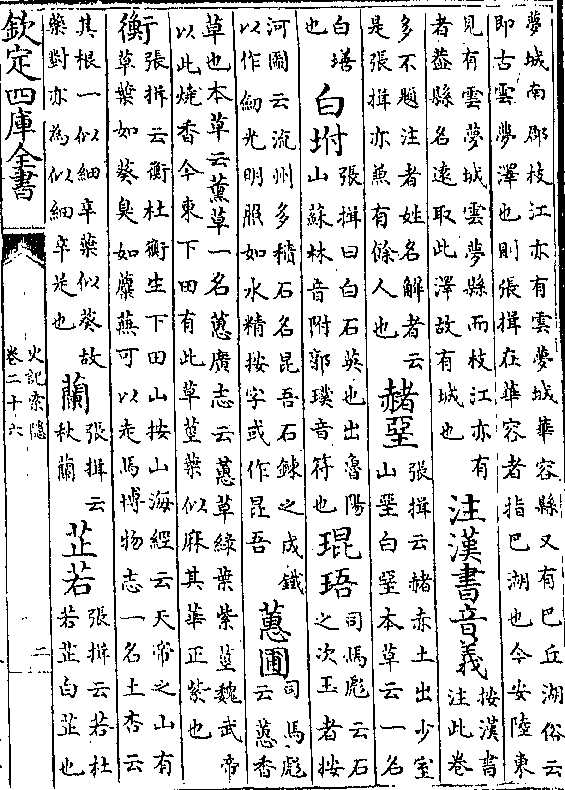 夢城南郡枝江亦有雲夢城華容縣又有巴丘湖俗云
即古雲夢澤也則張揖在華容者指巴湖也今安陸東
見有雲夢城雲夢縣而枝江亦有
者蓋縣名遠取此澤故有城也
注漢書音義
按漢書
注此卷
多不題注者姓名解者云
是張揖亦兼有餘人也
赭堊
張揖云赭赤土出少室
山堊白堊本草云一名
白墡
也
白坿
張揖曰白石英也出魯陽
山蘇林音附郭璞音符也
琨珸
司馬彪云石
之次玉者按
河圖云流州多積石名昆吾石錬之成鐵
以作劒光明照如水精按字或作昆吾
蕙圃
司馬彪
云蕙香
草也本草云薫草一名蕙廣志云蕙草緑葉紫莖魏武帝
以此燒香今東下田有此草莖葉似麻其華正紫也
衡
張揖云衡杜衡生下田山按山海經云天帝之山有
草葉如葵臭如蘪蕪可以走馬博物志一名土杏云
其根一似細辛葉似葵故
藥對亦為似細辛是也
蘭
張揖云
秋蘭
芷若
張揖云若杜
若芷白芷也
欽定四庫全書
史記索隱
卷二十六
二